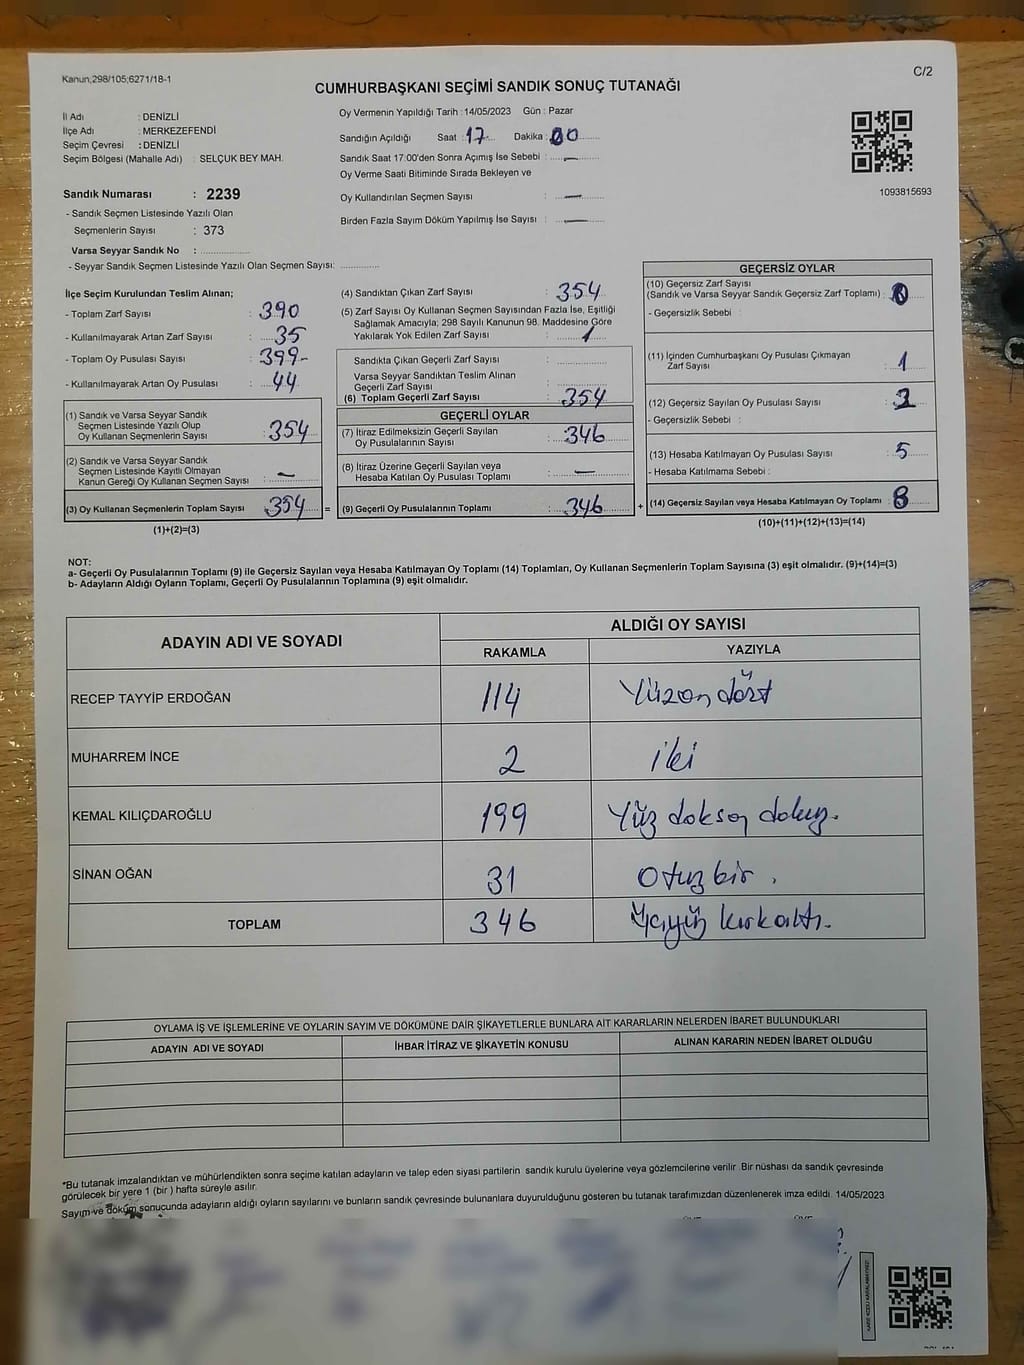 Kanun;298/105;6271/18-1
C/2
CUMHURBAŞKANI SEÇİMİ SANDIK SONUÇ TUTANAĞI
İl Adı : DENİZLİ
İlçe Adı : MERKEZEFENDİ
Seçim Çevresi : DENİZLİ
Seçim Bölgesi (Mahalle Adı) : SELÇUK BEY MAH.
Sandık Numarası : 2239
- Sandık Seçmen Listesinde Yazılı Olan
Seçmenlerin Sayısı : 373
Varsa Seyyar Sandık No :
- Seyyar Sandık Seçmen Listesinde Yazılı Olan Seçmen Sayısı:
Oy Vermenin Yapıldığı Tarih : 14/05/2023 Gün : Pazar
Sandığın Açıldığı Saat : 17 Dakika : 00
Sandık Saat 17:00'den Sonra Açımış İse Sebebi : —
Oy Verme Saati Bitiminde Sırada Bekleyen ve
Oy Kullandırılan Seçmen Sayısı : —
Birden Fazla Sayım Döküm Yapılmış İse Sayısı : —
1093815693
İlçe Seçim Kurulundan Teslim Alınan;
- Toplam Zarf Sayısı : 390
- Kullanılmayarak Artan Zarf Sayısı : 35
- Toplam Oy Pusulası Sayısı : 399-
- Kullanılmayarak Artan Oy Pusulası : 44
(1) Sandık ve Varsa Seyyar Sandık
Seçmen Listesinde Yazılı Olup
Oy Kullanan Seçmenlerin Sayısı : 354
(2) Sandık ve Varsa Seyyar Sandık
Seçmen Listesinde Kayıtlı Olmayan
Kanun Gereği Oy Kullanan Seçmen Sayısı : —
(3) Oy Kullanan Seçmenlerin Toplam Sayısı : 354 =
(1)+(2)=(3)
(4) Sandıktan Çıkan Zarf Sayısı : 354
(5) Zarf Sayısı Oy Kullanan Seçmen Sayısından Fazla İse, Eşitliği
Sağlamak Amacıyla; 298 Sayılı Kanunun 98. Maddesine Göre
Yakılarak Yok Edilen Zarf Sayısı : 1
Sandıkta Çıkan Geçerli Zarf Sayısı :
Varsa Seyyar Sandıktan Teslim Alınan
Geçerli Zarf Sayısı :
(6) Toplam Geçerli Zarf Sayısı : 354
GEÇERLİ OYLAR
(7) İtiraz Edilmeksizin Geçerli Sayılan
Oy Pusulalarının Sayısı : 346
(8) İtiraz Üzerine Geçerli Sayılan veya
Hesaba Katılan Oy Pusulası Toplamı : —
(9) Geçerli Oy Pusulalarının Toplamı : 346 +
GEÇERSİZ OYLAR
(10) Geçersiz Zarf Sayısı
(Sandık ve Varsa Seyyar Sandık Geçersiz Zarf Toplamı) :
- Geçersizlik Sebebi :
(11) İçinden Cumhurbaşkanı Oy Pusulası Çıkmayan
Zarf Sayısı : 1
(12) Geçersiz Sayılan Oy Pusulası Sayısı :
- Geçersizlik Sebebi :
(13) Hesaba Katılmayan Oy Pusulası Sayısı : 5
- Hesaba Katılmama Sebebi :
(14) Geçersiz Sayılan veya Hesaba Katılmayan Oy Toplamı : 8
(10)+(11)+(12)+(13)=(14)
NOT:
a- Geçerli Oy Pusulalarının Toplamı (9) ile Geçersiz Sayılan veya Hesaba Katılmayan Oy Toplamı (14) Toplamları, Oy Kullanan Seçmenlerin Toplam Sayısına (3) eşit olmalıdır. (9)+(14)=(3)
b- Adayların Aldığı Oyların Toplamı, Geçerli Oy Pusulalarının Toplamına (9) eşit olmalıdır.
ADAYIN ADI VE SOYADI
ALDIĞI OY SAYISI
RAKAMLA YAZIYLA
RECEP TAYYİP ERDOĞAN 114 Yüzon dört
MUHARREM İNCE 2 iki
KEMAL KILIÇDAROĞLU 199 Yüz doksan dokuz.
SİNAN OĞAN 31 Otuz bir.
TOPLAM 346 Üçyüz kırkaltı.
OYLAMA İŞ VE İŞLEMLERİNE VE OYLARIN SAYIM VE DÖKÜMÜNE DAİR ŞİKAYETLERLE BUNLARA AİT KARARLARIN NELERDEN İBARET BULUNDUKLARI
ADAYIN ADI VE SOYADI İHBAR İTİRAZ VE ŞİKAYETİN KONUSU ALINAN KARARIN NEDEN İBARET OLDUĞU
*Bu tutanak imzalandıktan ve mühürlendikten sonra seçime katılan adayların ve talep eden siyasi partilerin sandık kurulu üyelerine veya gözlemcilerine verilir. Bir nüshası da sandık çevresinde
görülecek bir yere 1 (bir) hafta süreyle asılır.
Sayım ve döküm sonucunda adayların aldığı oyların sayılarını ve bunların sandık çevresinde bulunanlara duyurulduğunu gösteren bu tutanak tarafımızdan düzenlenerek imza edildi. 14/05/2023